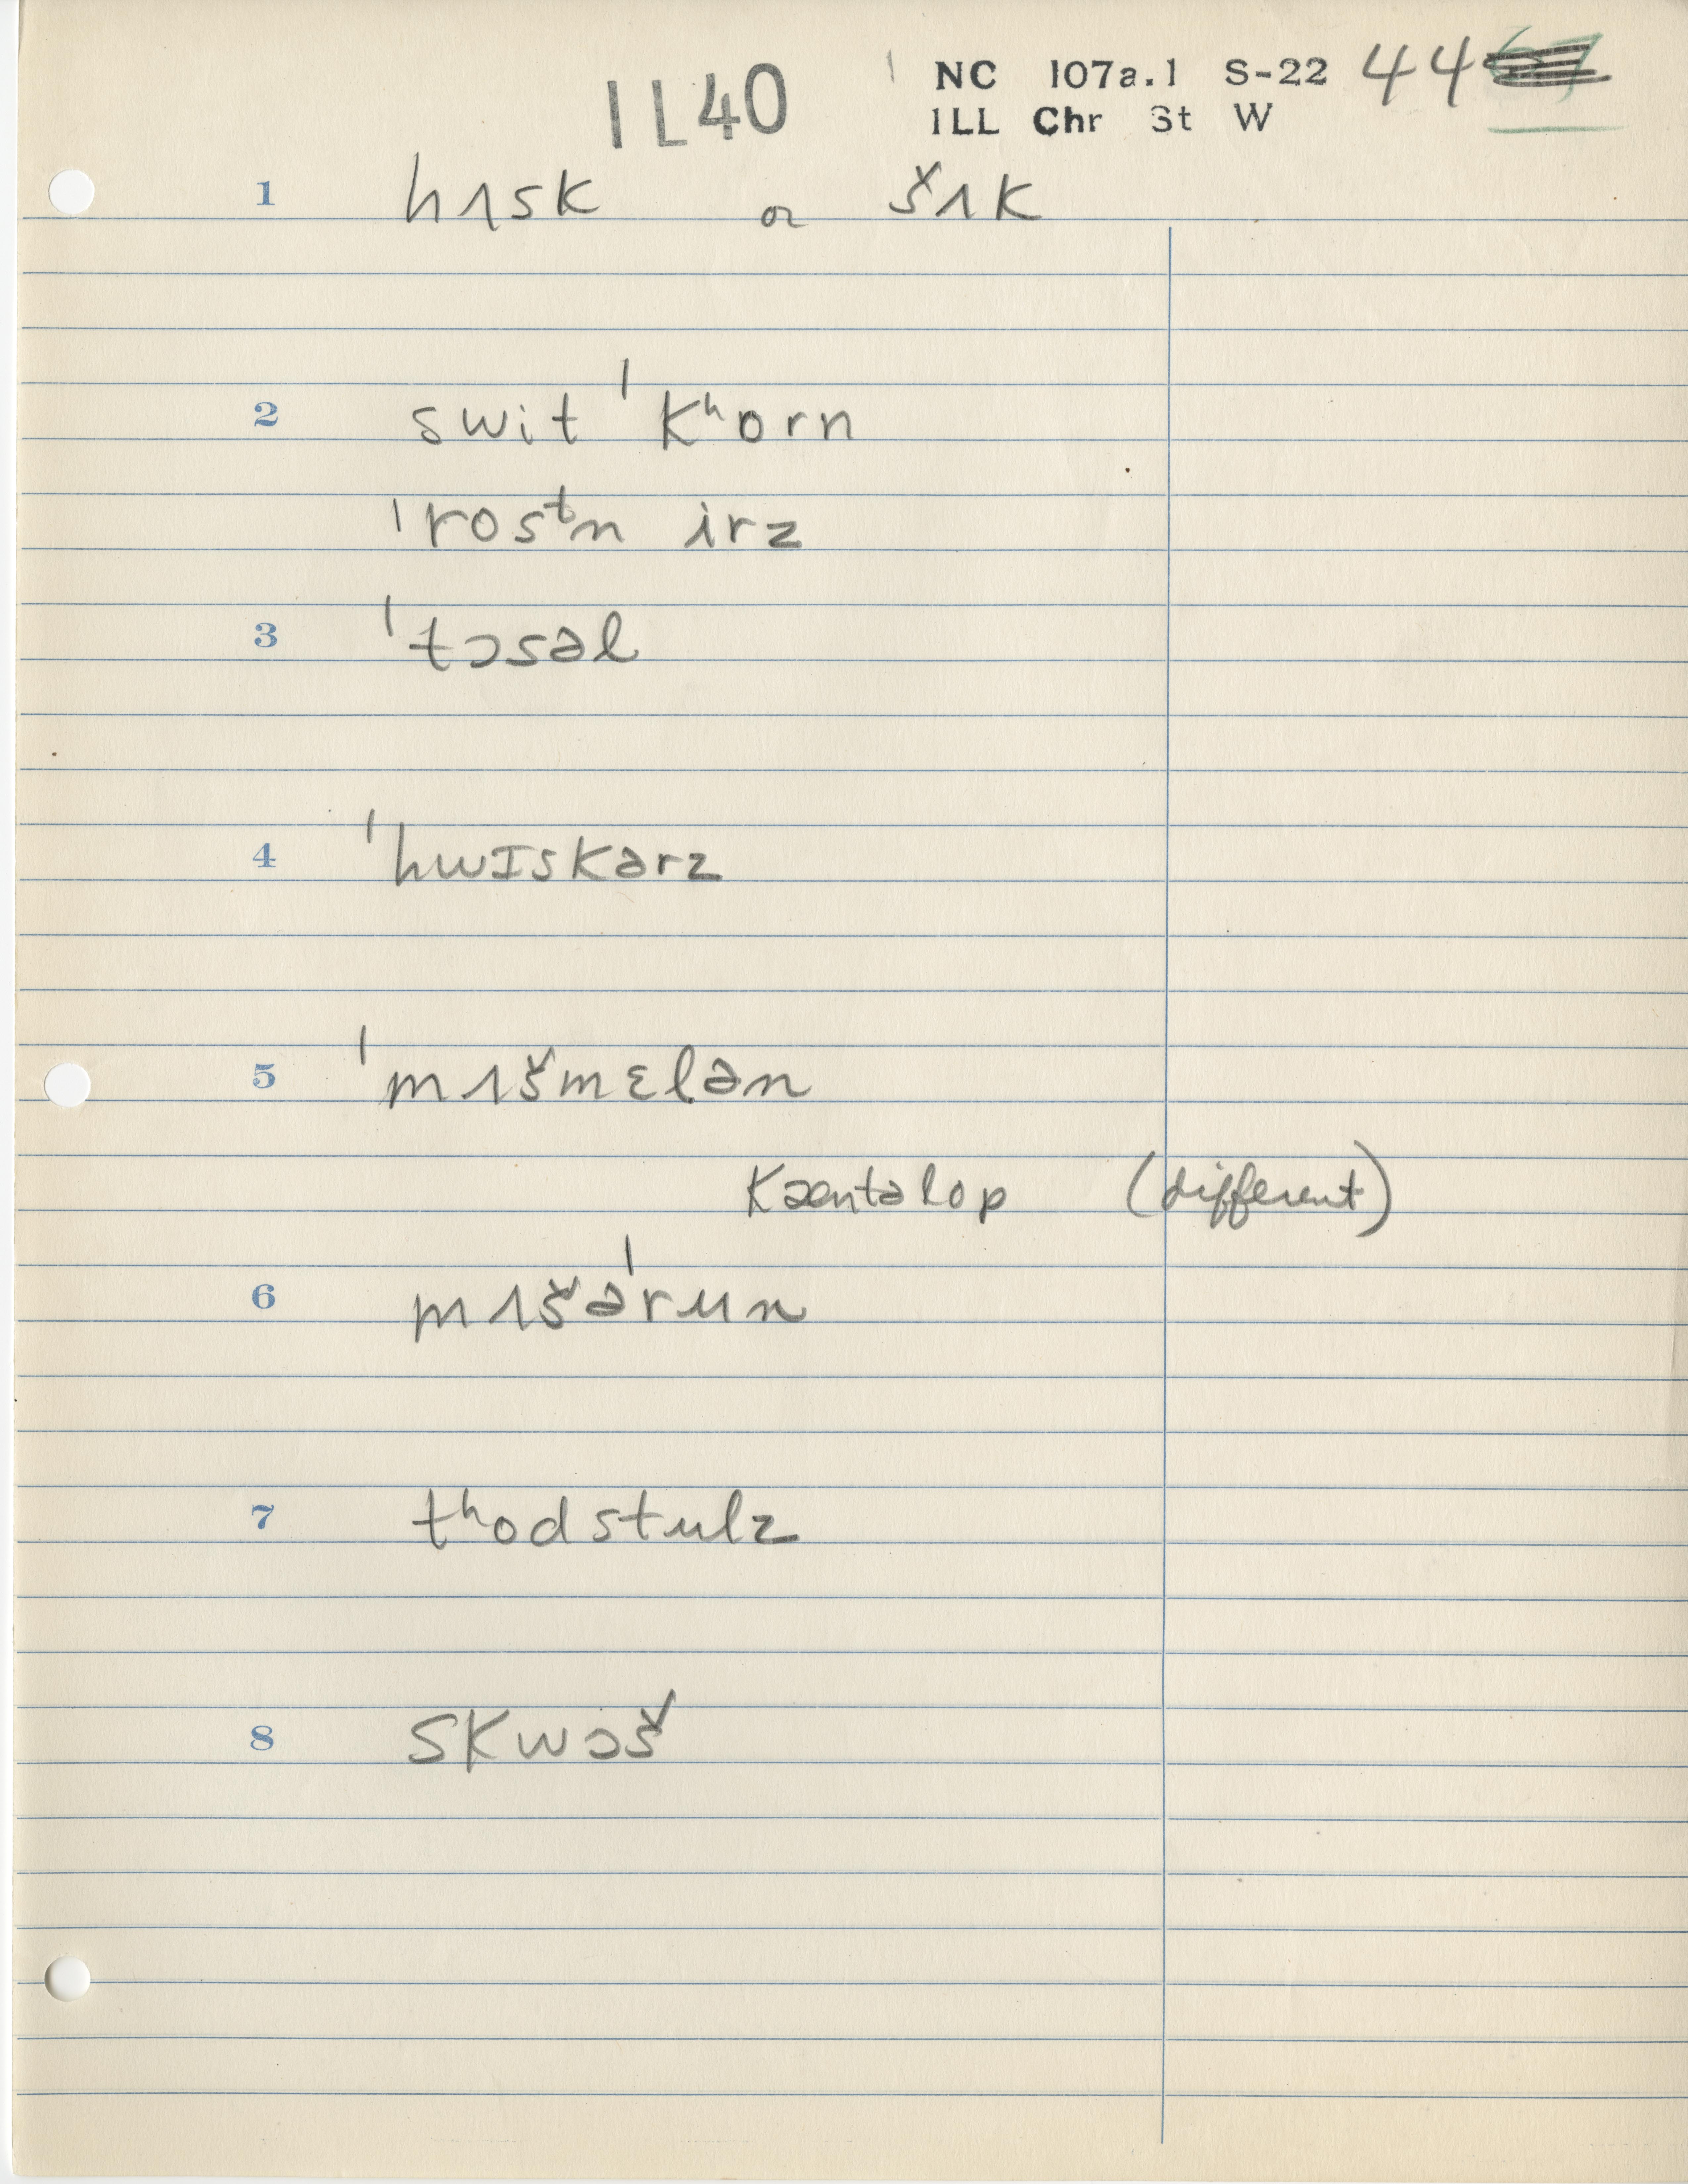 IL40
NC 107a.1 S-22 44
ILL Chr St W
1 hʌsk or šʌk
2 swit ˈkʰorn
ˈrosᵗn irz
3 ˈtɔsəl
4 ˈhwɪskərz
5 ˈmʌšmɛlən
kæntəlop (different)
6 mʌšəˈrun
7 tʰodstulz
8 skwɔš